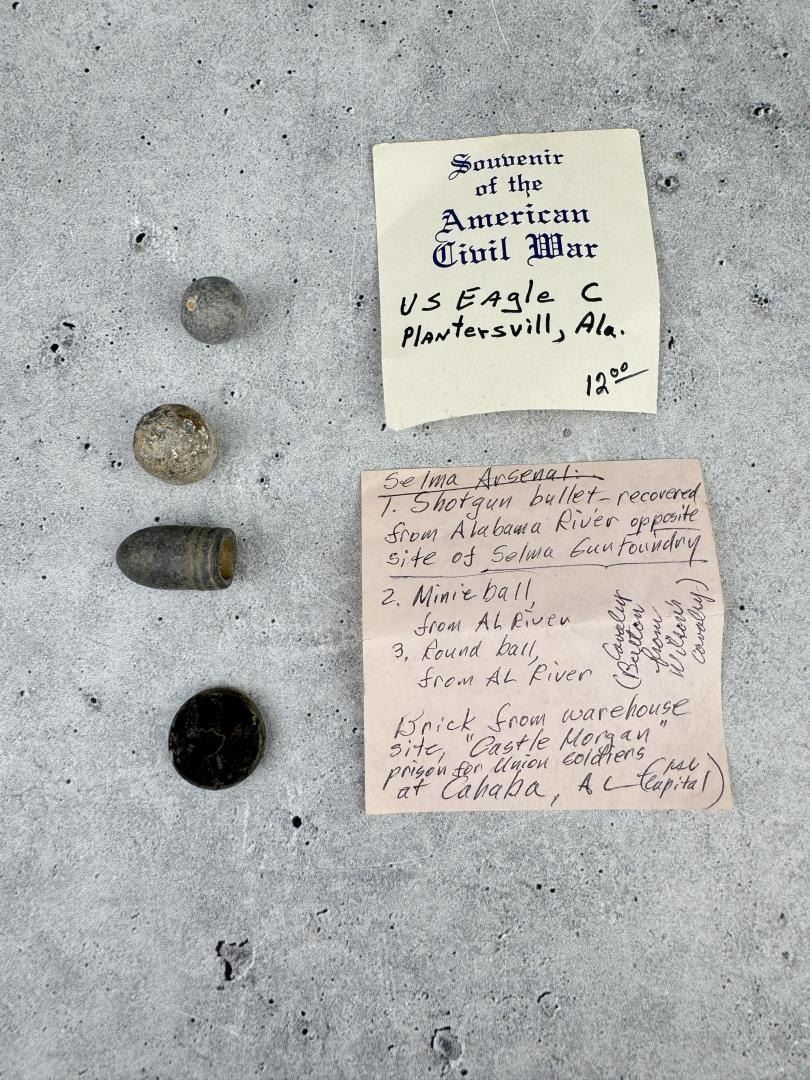 Souvenir
of the
American
Civil War
US Eagle C
Plantersvill, Ala.
12.00
Selma Arsenal:
1. Shotgun bullet - recovered
from Alabama River opposite
site of Selma Gun Foundry
2. Minie ball,
from AL River
3. Round ball,
from AL River
(Cavalry
Button
from
Wilson's
cavalry)
Brick from warehouse
site, "Castle Morgan"
prison for Union soldiers
at Cahaba, AL
Capital)